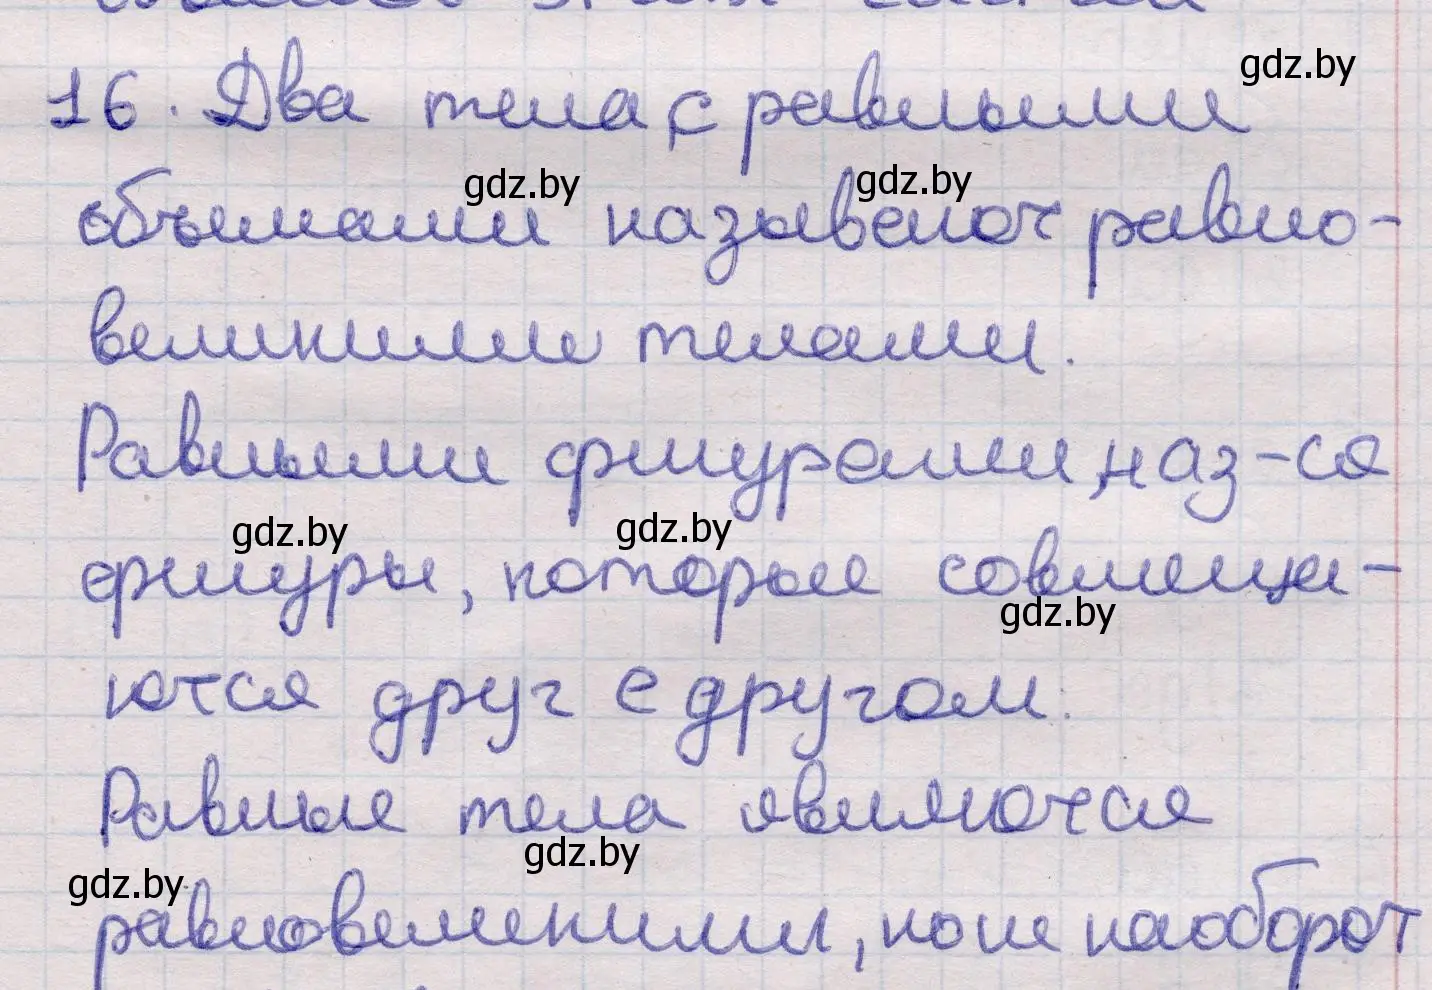 16. Два тела с равными
gdz.by
gdz.by
gdz.by
объемами называют равно-
великими телами.
Равными фигурами наз-ся
gdz.by
gdz.by
фигуры, которые совмеща-
gdz.by
ются друг с другом.
Равные тела являются
gdz.by
gdz.by
равновеликими, но не наоборот